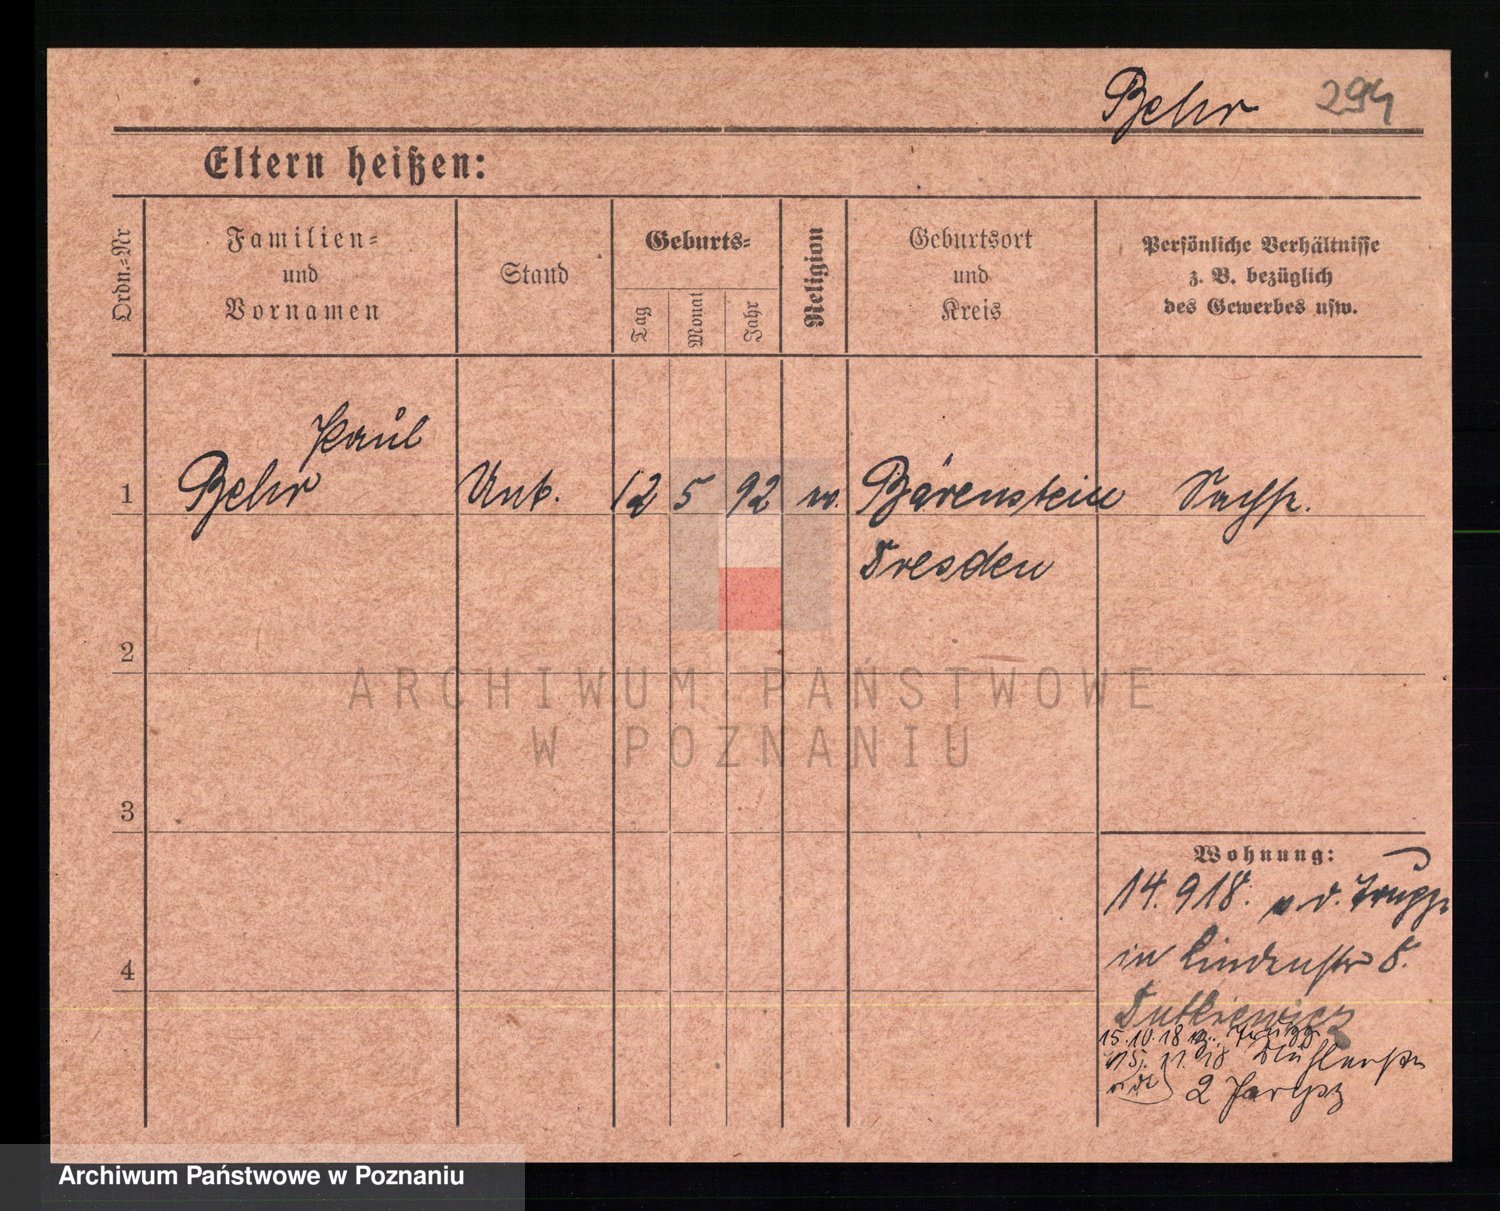 Behr 294
Eltern heißen:
Ordn.-Nr
Familien-
und
Vornamen
Stand
Geburts-
Tag
Monat
Jahr
Religion
Geburtsort
und
Kreis
Persönliche Verhältnisse
z. B. bezüglich
des Gewerbes usw.
Paul
1 Behr Unt. 12 5 92 Bärenstein
Dresden
2
3
4
ARCHIWUM PAŃSTWOWE
W POZNANIU
Wohnung:
14. 9 18. v. d. Truppe
in Lindenstr 8.
Dutkiewicz
15.10.18 Trupp
15. 11. 18
2
Archiwum Państwowe w Poznaniu